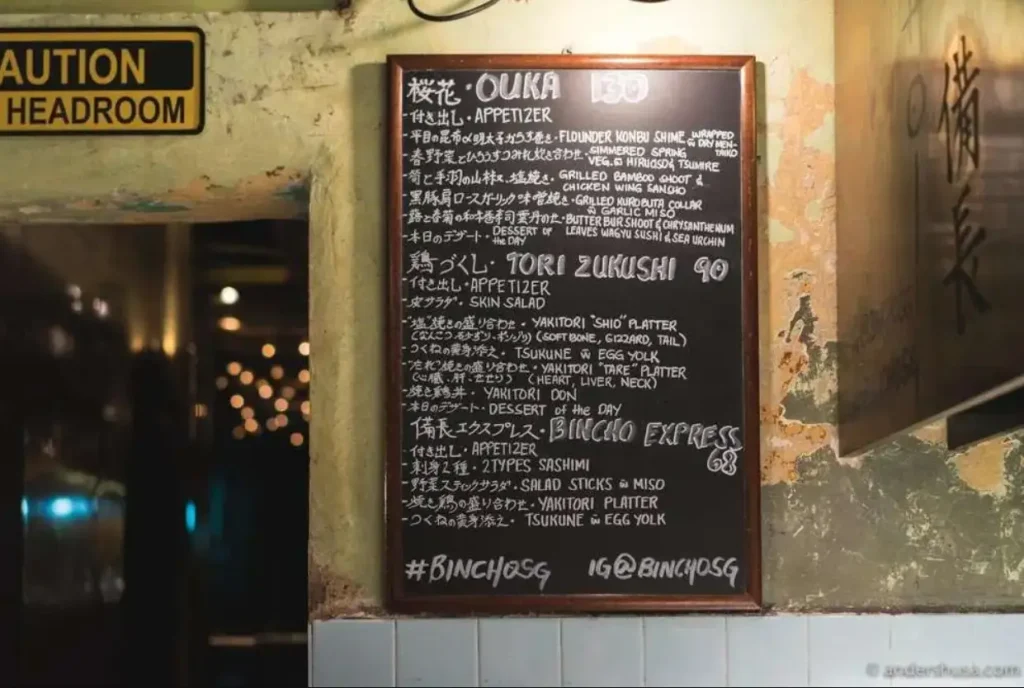 AUTION
HEADROOM
桜花・OUKA 130
-付き出し・APPETIZER
-平目の昆布〆明太子がらす巻き・FLOUNDER KONBU SHIME WRAPPED w DRY MEN-
TAIKO
-春野菜とひろうすつみれ炊き合わせ・SIMMERED SPRING
VEG. w HIRUOSU & TSUMIRE
-筍と手羽の山椒塩焼き・GRILLED BAMBOO SHOOT &
CHICKEN WING SANSHO
-黒豚肩ロースガーリック味噌焼き・GRILLED KUROBUTA COLLAR
w GARLIC MISO
-蕗と春菊の和牛寿司雲丹のせ・BUTTERBUR SHOOT & CHRYSANTHENUM
LEAVES WAGYU SUSHI & SEA URCHIN
-本日のデザート・DESSERT OF
the DAY
鶏づくし・TORI ZUKUSHI 90
-付き出し・APPETIZER
-皮サラダ・SKIN SALAD
-"塩"焼きの盛り合わせ・YAKITORI "SHIO" PLATTER
(なんこつ・砂ずり・ボンジリ) (SOFTBONE, GIZZARD, TAIL)
-つくねの黄身添え・TSUKUNE w EGG YOLK
-"たれ"焼きの盛り合わせ・YAKITORI "TARE" PLATTER
(心臓、肝、せせり) (HEART, LIVER, NECK)
-焼き鶏丼・YAKITORI DON
-本日のデザート・DESSERT of the DAY
備長エクスプレス・BINCHO EXPRESS
68
-付き出し・APPETIZER
-刺身2種・2TYPES SASHIMI
-野菜スティックサラダ・SALAD STICKS w MISO
-焼き鶏の盛り合わせ・YAKITORI PLATTER
-つくねの黄身添え・TSUKUNE w EGG YOLK
#BINCHOSG IG@BINCHOSG
備長
© andershusa.com